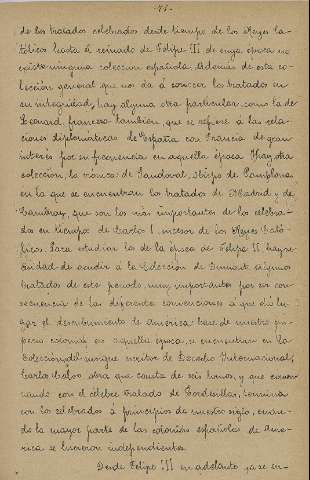 -77-
de los tratados celebrados desde tiempo de los Reyes Ca-
tólicos hasta el reinado de Felipe II de cuya época no
existe ninguna coleccion española. Además de esta co-
leccion general que no dá á conocer los tratados en
su integridad, hay alguna otra particular como la de
Leonard, frances tambien, que se refiere á las rela-
ciones diplomáticas de España con Francia de gran
interés por su frecuencia en aquella época. Hay otra
coleccion, la crónica de Sandoval, obispo de Pamplona
en la que se encuentran los tratados de Madrid y de
Cambray, que son los más importantes de los celebra-
dos en tiempo de Carlos I, nieto de los Reyes Cató-
licos. Para estudiar los de la época de Felipe II hay ne-
cesidad de acudir á la Coleccion de Dumont. Algunos
tratados de este período muy importantes por ser con-
secuencia de las diferentes convenciones á que dió lu-
gar el descubrimiento de America base de nuestro im-
perio colonial en aquella época, se encuentran en la
Coleccion del insigne escritor de Derecho Internacional,
Carlos Calvo obra que consta de seis tomos, y que comen-
zando con el célebre tratado de Tordesillas, termina
con los celebrados á principios de nuestro siglo, cuan-
do la mayor parte de las colonias españolas de Amé-
rica se hicieron independientes.
Desde Felipe III en adelante ya se en-